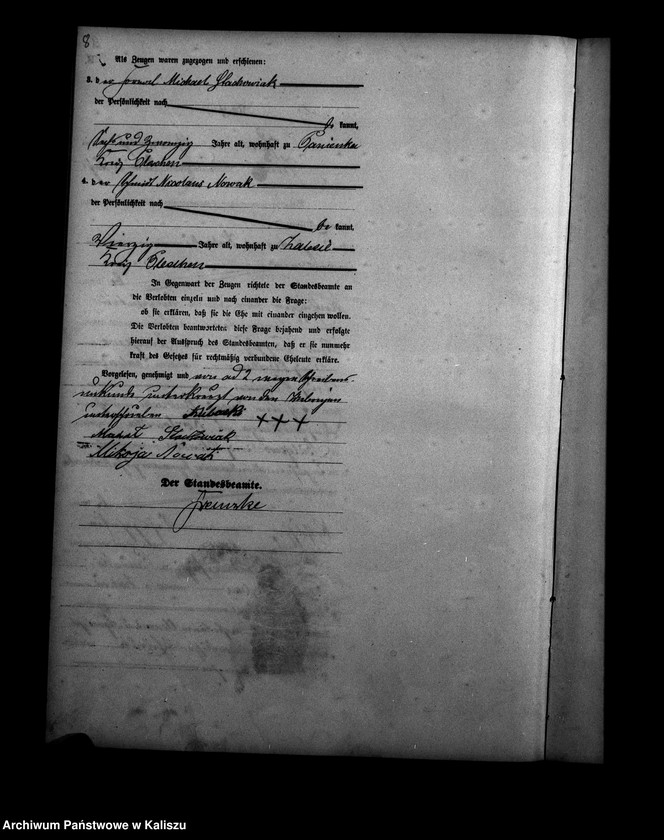 8
Als Zeugen waren zugezogen und erschienen:
3. der Michael Stachowiak
der Persönlichkeit nach
be kannt,
Sechs und Zwanzig Jahre alt, wohnhaft zu Panienka
Kreis Pleschen
4. der Schmidt Nicolaus Nowak
der Persönlichkeit nach
be kannt,
Vierzig Jahre alt, wohnhaft zu
Kreis Pleschen
In Gegenwart der Zeugen richtete der Standesbeamte an
die Verlobten einzeln und nach einander die Frage:
ob sie erklären, daß sie die Ehe mit einander eingehen wollen.
Die Verlobten beantworteten diese Frage bejahend und erfolgte
hierauf der Ausspruch des Standesbeamten, daß er sie nunmehr
kraft des Gesetzes für rechtmäßig verbundene Eheleute erkläre.
Vorgelesen, genehmigt und von ad 2 wegen Schreibens
unkunde unterkreuzt von den Uebrigen
unterschrieben +++
Stachowiak
Nowak
Der Standesbeamte.
Archiwum Państwowe w Kaliszu